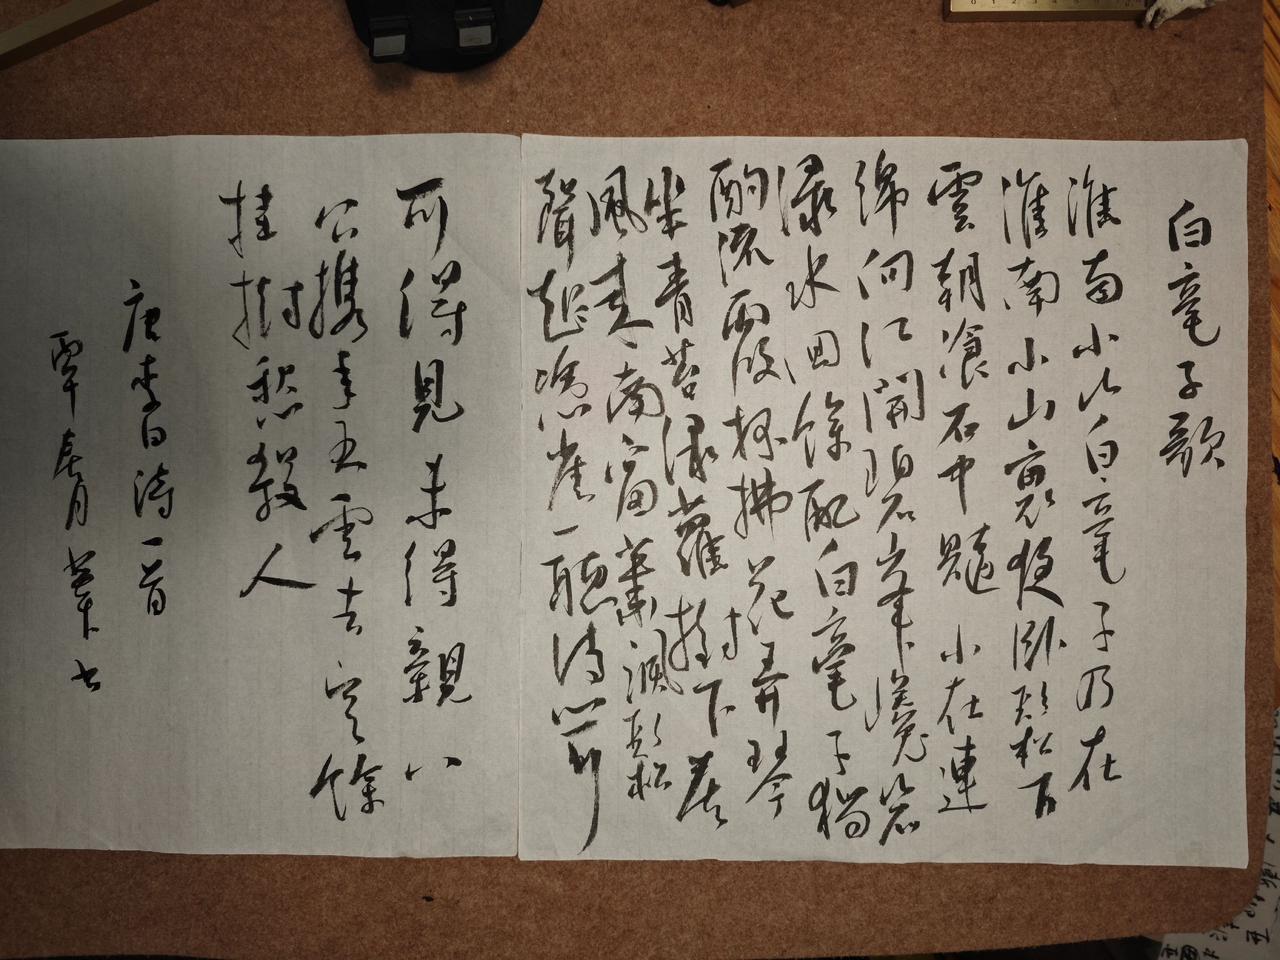 白毫子歌
淮南小山白毫子乃在
淮南小山裏夜卧鬆下
雲朝飡石中髓小在連
綿向江開碧峯巉巖
淥水回餘配白毫子獨
酌流霞杯拂花弄琴
坐青苔淥蘿樹下春
風來南窗蕭颯鬆
聲起憑崖一聽清心耳
可得見未得親八
公攜手五雲去空餘
桂樹愁殺人
唐李白詩一首
春月